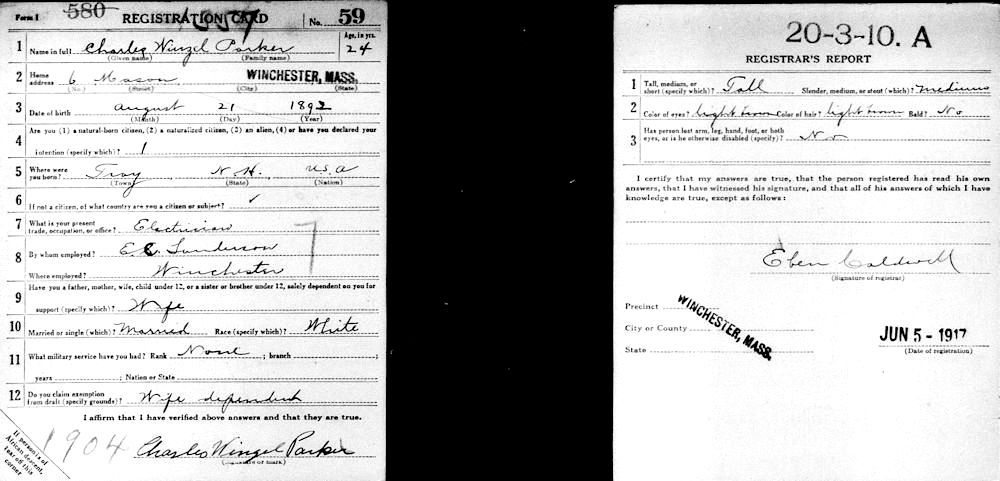 Form 1 580 REGISTRATION CARD No. 59
1 Name in full Charles Winzel Parker Age, in yrs. 24
(Given name) (Family name)
2 Home address 6 Mason WINCHESTER, MASS.
(No.) (Street) (City) (State)
3 Date of birth August 21 1892
(Month) (Day) (Year)
4 Are you (1) a natural-born citizen, (2) a naturalized citizen, (3) an alien, (4) or have you declared your
intention (specify which)? 1
5 Where were you born? Troy N.H. U.S.A
(Town) (State) (Nation)
6 If not a citizen, of what country are you a citizen or subject? ✓
7 What is your present trade, occupation, or office? Electrician
8 By whom employed? E.C. Sanderson
Where employed? Winchester
9 Have you a father, mother, wife, child under 12, or a sister or brother under 12, solely dependent on you for
support (specify which)? Wife
10 Married or single (which)? Married Race (specify which)? White
11 What military service have you had? Rank None ; branch ;
years ; Nation or State
12 Do you claim exemption from draft (specify grounds)? Wife dependent
I affirm that I have verified above answers and that they are true.
1904 Charles Winzel Parker
(Signature or mark)
If person is of
African descent,
tear off this
corner
20-3-10. A
REGISTRAR'S REPORT
1 Tall, medium, or short (specify which)? Tall Slender, medium, or stout (which)? Medium
2 Color of eyes? Light brown Color of hair? Light brown Bald? No
3 Has person lost arm, leg, hand, foot, or both
eyes, or is he otherwise disabled (specify)? No
I certify that my answers are true, that the person registered has read his own
answers, that I have witnessed his signature, and that all of his answers of which I have
knowledge are true, except as follows:
Eben Caldwell
(Signature of registrar)
Precinct
City or County
State
WINCHESTER, MASS.
JUN 5 - 1917
(Date of registration)